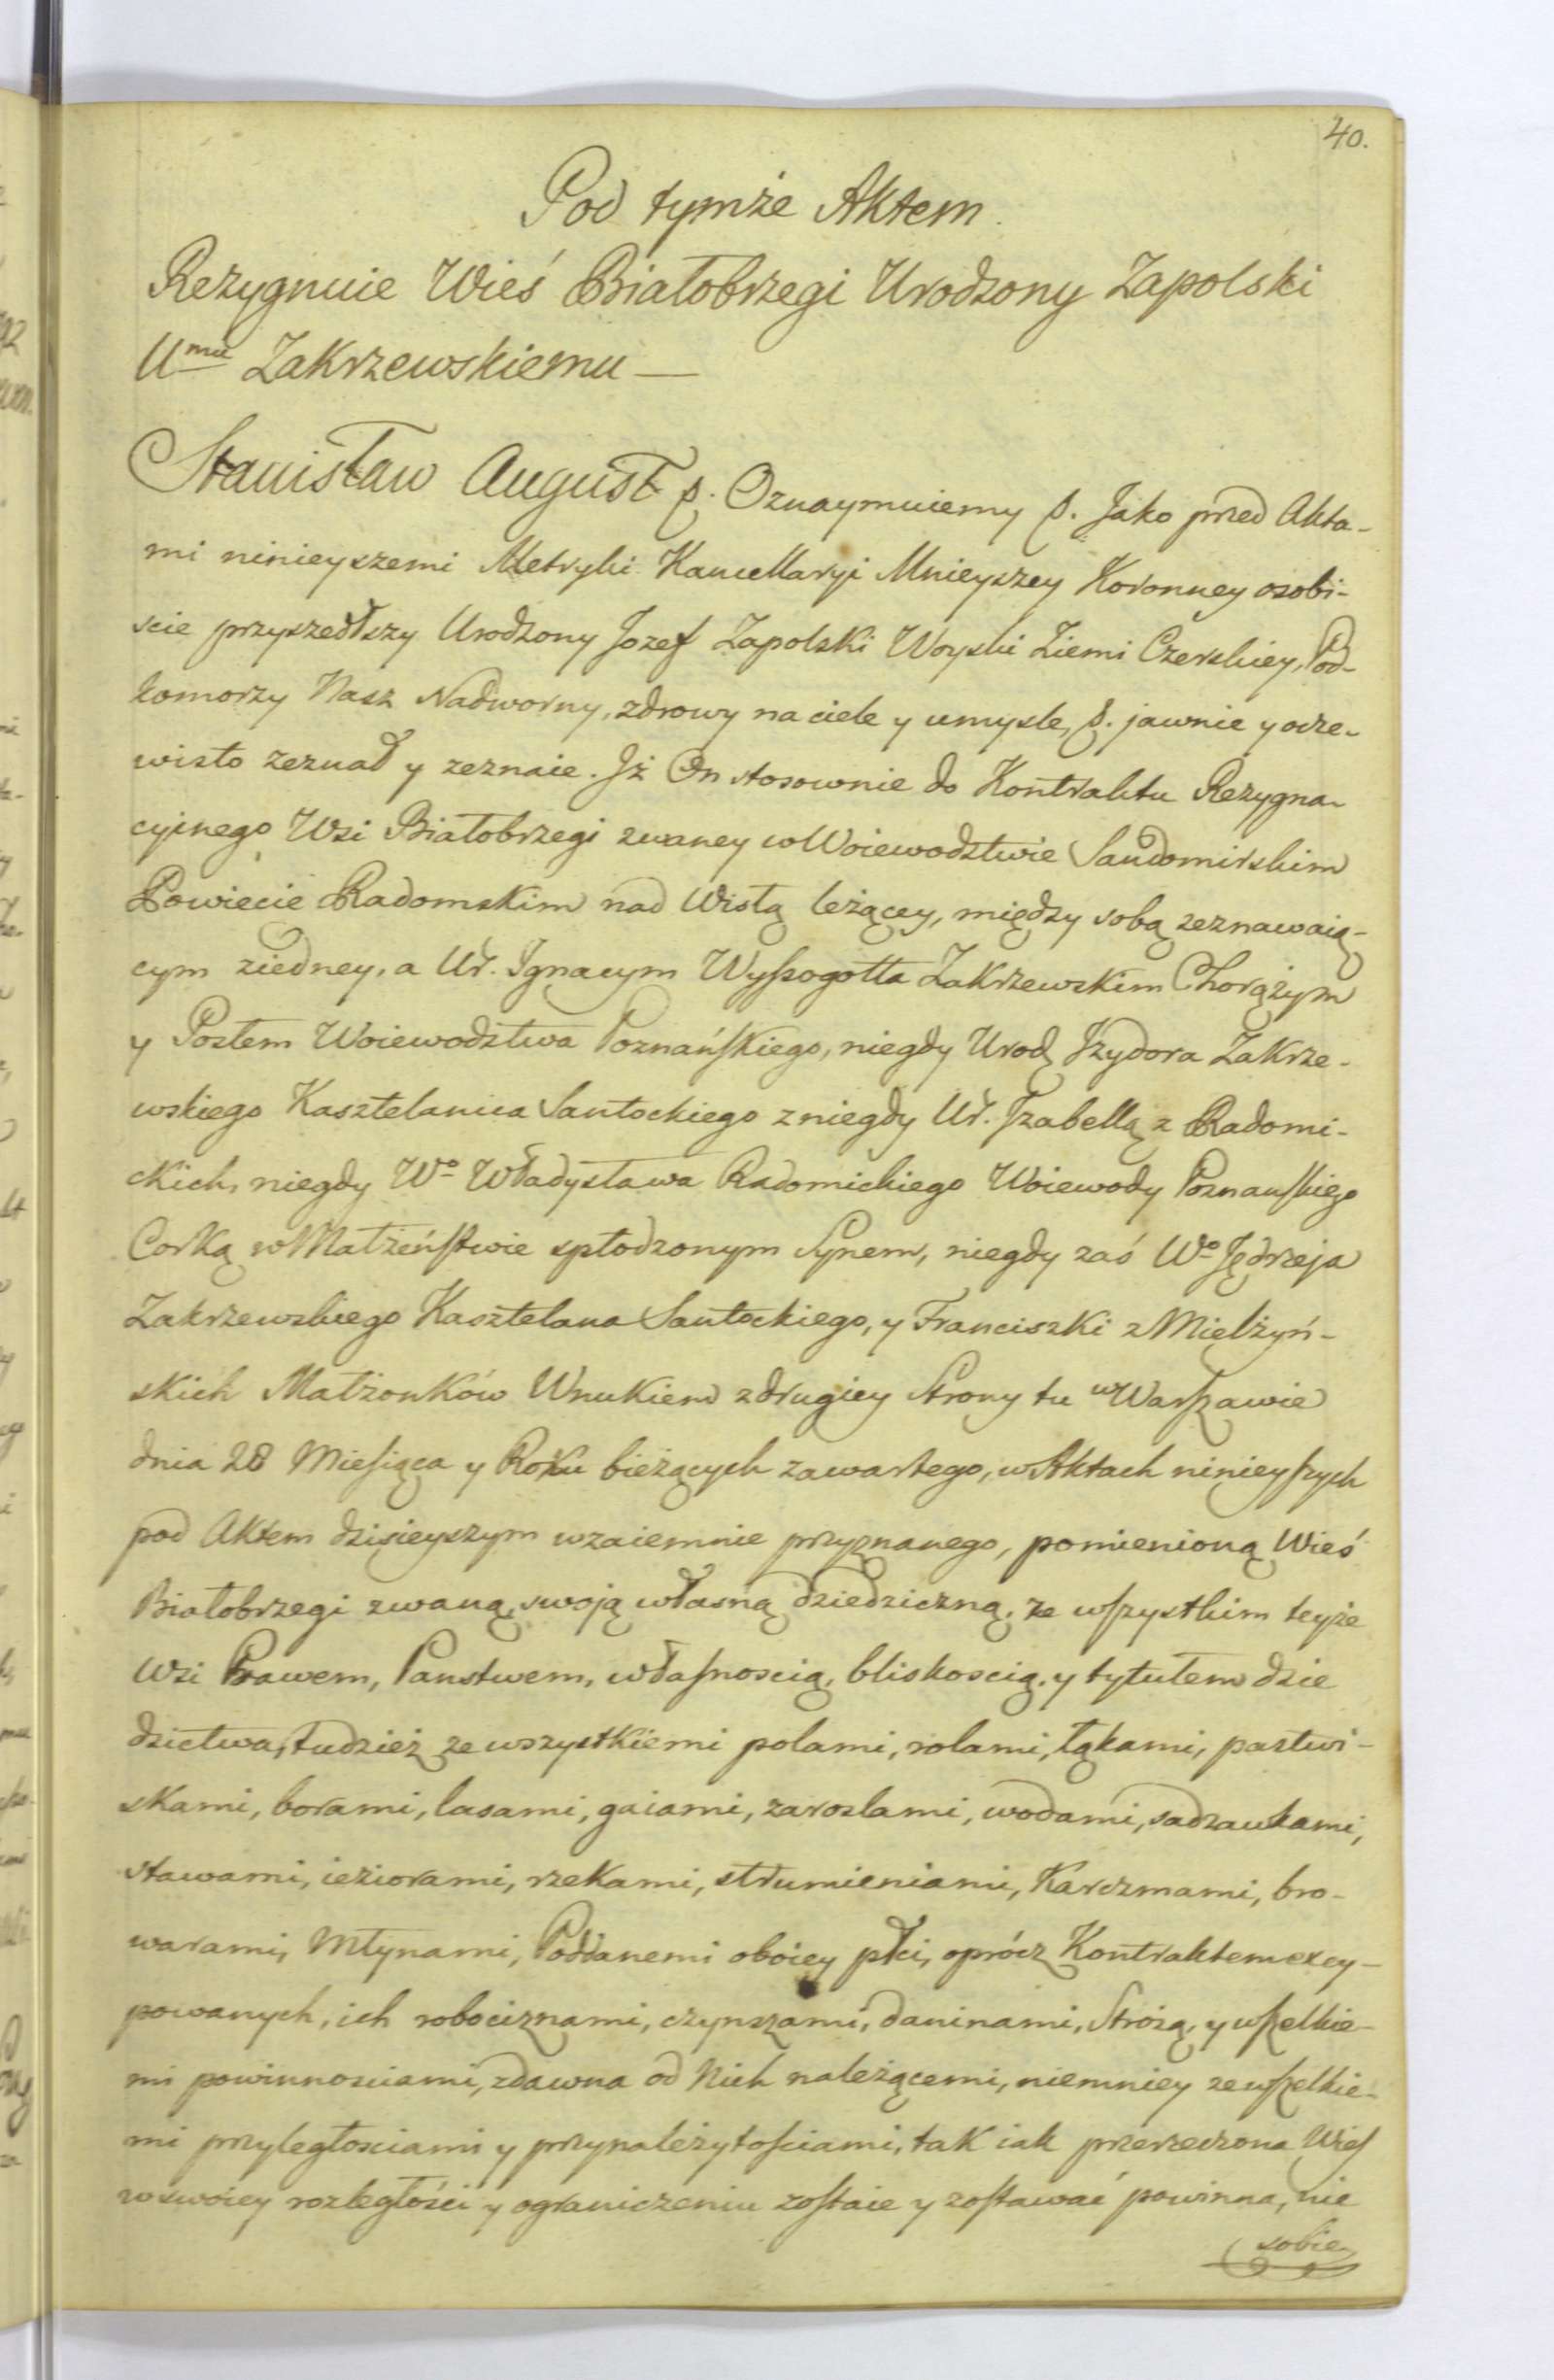 40.
Pod tymże Aktem.
Rezygnuie Wieś Białobrzegi Urodzony Zapolski
Umu Zakrzewskiemu —
Stanisław August p. Oznaymuiemy p. Jako przed Akta-
mi ninieyszemi Metryki Kancellaryi Mnieyszey Koronney osobi-
scie przyszedłszy Urodzony Jozef Zapolski Woyski Ziemi Czerskiey, Pod-
komorzy Nasz Nadworny, zdrowy na ciele y umysle, p. jawnie y ocze-
wisto zeznał y zeznaie. Jż On stosownie do Kontraktu Rezygna-
cyinego Wsi Białobrzegi zwaney w Woiewodztwie Sandomirskim
Powiecie Radomskim nad Wisłą leżącey, między sobą zeznawaią-
cym ziedney, a Ur. Jgnacym Wyssogotta Zakrzewskim Chorążym
y Posłem Woiewodztwa Poznańskiego, niegdy Urod Jzydora Zakrze-
wskiego Kasztelanica Santockiego z niegdy Ur. Jzabellą z Radomi-
ckich, niegdy Wo Władysława Radomickiego Woiewody Poznanskiego
Corką w Małżeństwie spłodzonym Synem, niegdy zaś Wo Jędrzeja
Zakrzewskiego Kasztelana Santockiego, y Franciszki z Mielżyń-
skich Małżonków Wnukiem z drugiey Strony tu w Warszawie
dnia 28 Miesiąca y Roku bieżących zawartego, w Aktach ninieyszych
pod Aktem dzisieyszym wzaiemnie przyznanego, pomienioną Wieś
Białobrzegi zwaną, swoją własną dziedziczną, ze wszystkim teyże
Wsi Prawem, Panstwem, własnoscią, bliskoscią, y tytułem dzie
dzictwa, tudzież ze wszystkiemi polami, rolami, łąkami, pastwi-
skami, borami, lasami, gaiami, zaroslami, wodami, sadzawkami,
stawami, ieziorami, rzekami, strumieniami, Karczmami, bro-
warami, Młynami, Poddanemi oboiey płci, oprócz Kontraktem excy-
powanych, ich robociznami, czynszami, daninami, Strożą, y wszelkie-
mi powinnosciami, zdawna od Nich należącemi, niemniey ze wszelkie-
mi przyległosciami y przynależytosciami, tak iak przerzeczona Wies
w swoiey rozległości y ograniczeniu zostaie y zostawać powinna, nie
sobie